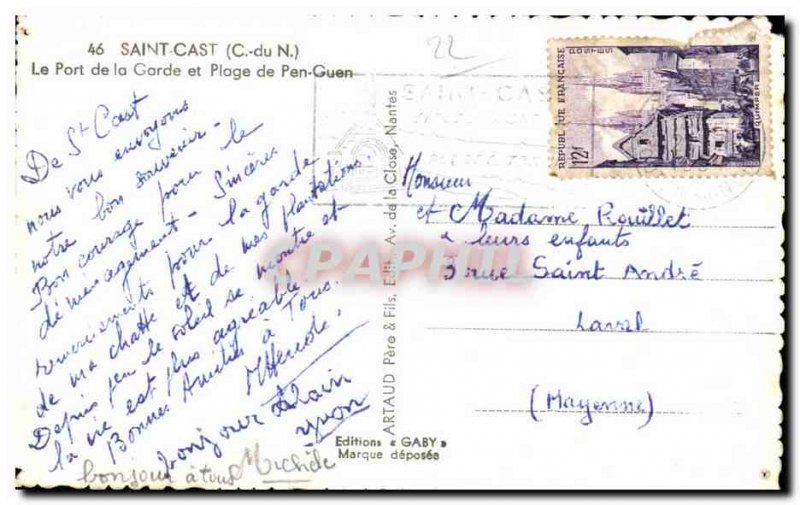 46 SAINT-CAST (C.-du N.)
Le Port de la Garde et Plage de Pen-Guen
22
De St Cast
nous vous envoyons
notre bon souvenir -
Bon courage pour le
déménagement - Sincères
remerciements pour la garde
de ma chatte et de mes plantations.
Depuis peu le soleil se montre et
la vie est plus agréable.
Bonnes Amitiés à Tous.
bonjour Alain
yvon
bonjour à tous Michèle
ARTAUD Père & Fils, Edit. Av. de la Close, Nantes
Editions "GABY"
Marque déposée
SAINT-CAST
POSTES
REPUBLIQUE FRANÇAISE
12F
QUIMPER
Monsieur
et Madame Rouillet
& leurs enfants
3 rue Saint André
Laval
(Mayenne)
CPAPHIL